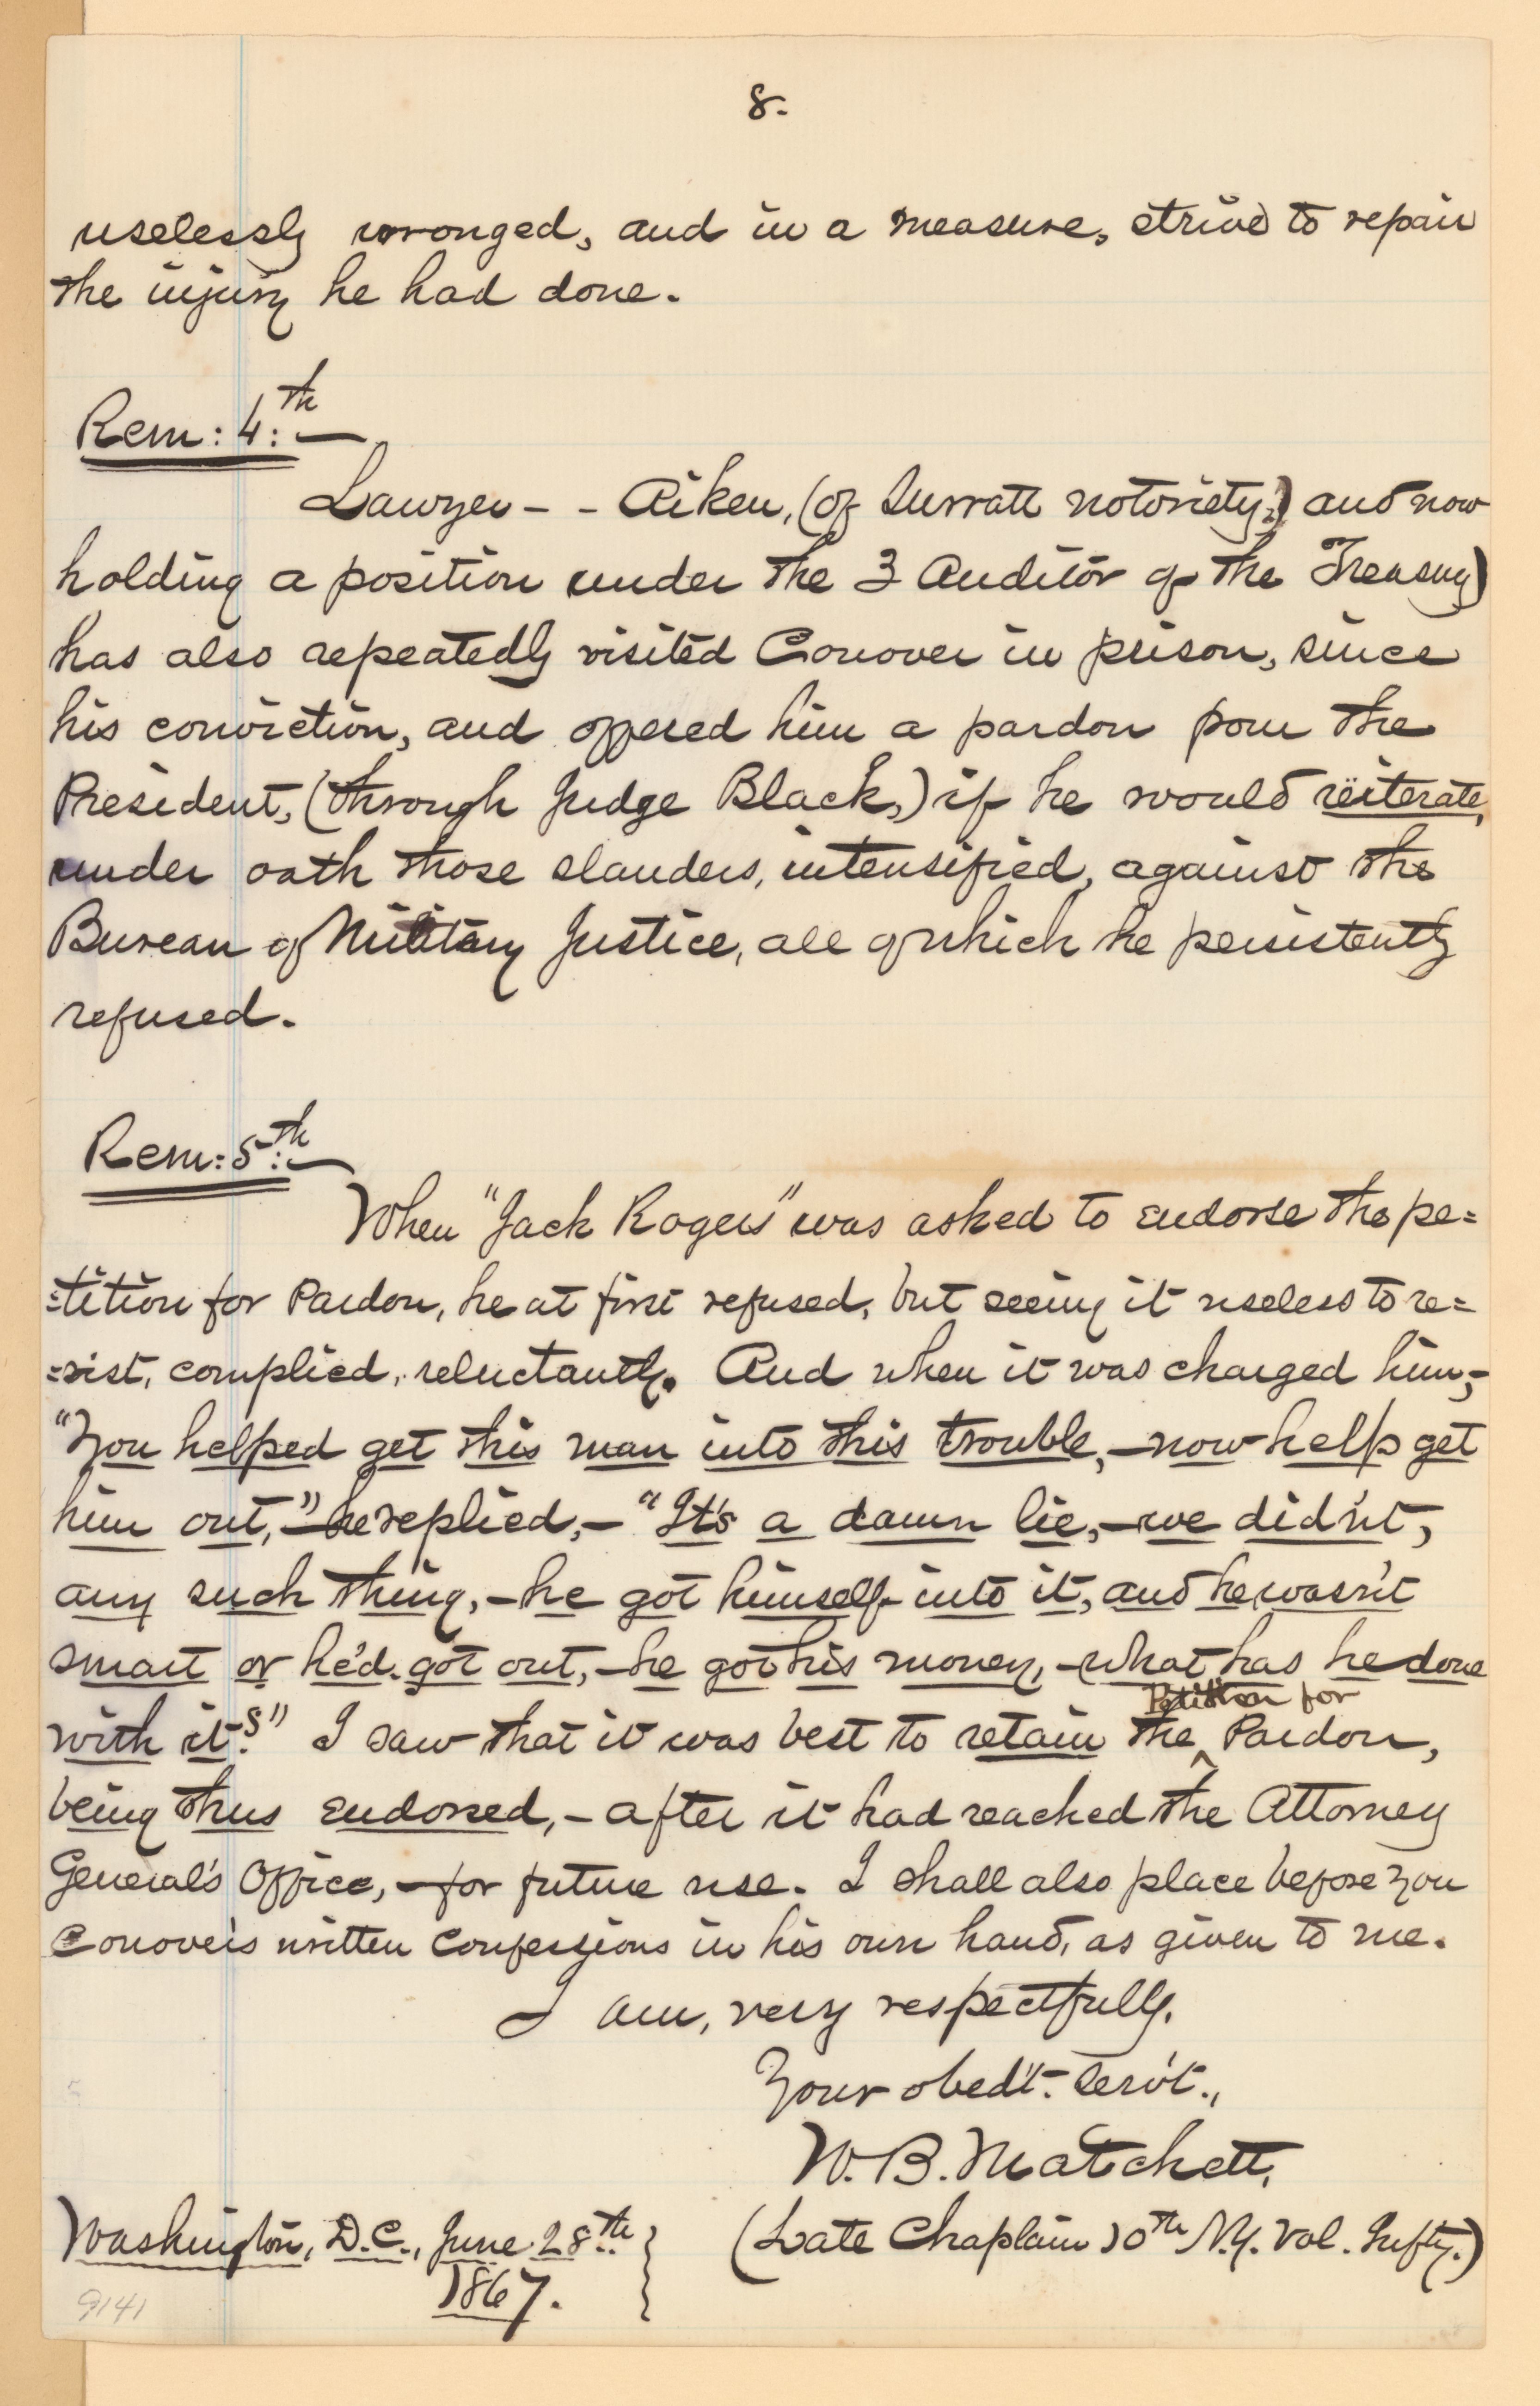 8.
uselessly wronged, and in a measure, strive to repair
the injury he had done.
Rem: 4:th —
Lawyer - - Aiken, (of Surratt notoriety,) and now
holding a position under the 3 Auditor of the Treasury)
has also repeatedly visited Conover in prison, since
his conviction, and offered him a pardon from the
President, (through Judge Black,) if he would reïterate,
under oath those slanders, intensified, against the
Bureau of Military Justice, all of which he persistently
refused.
Rem: 5:th —
When "Jack Rogers" was asked to endorse the pe=
=tition for Pardon, he at first refused, but seeing it useless to re=
=sist, complied, reluctantly. And when it was charged him,-
"You helped get this man into this trouble,—now help get
him out,"—he replied,— "It's a damn lie,—we did'nt,
any such thing,—he got himself into it, and he wasn't
smart or he'd. got out,—he got his money,—what has he done
with it?" I saw that it was best to retain the ^ Petition for Pardon,
being thus endorsed,—after it had reached the Attorney
General's Office,—for future use. I shall also place before you
Conover's written Confessions in his own hand, as given to me.
I am, very respectfully,
Your obed't. serv't.,
W. B. Matchett,
(Late Chaplain 10th N.Y. Vol. Infty.)
Washington, D.C., June 28th
1867.
9141